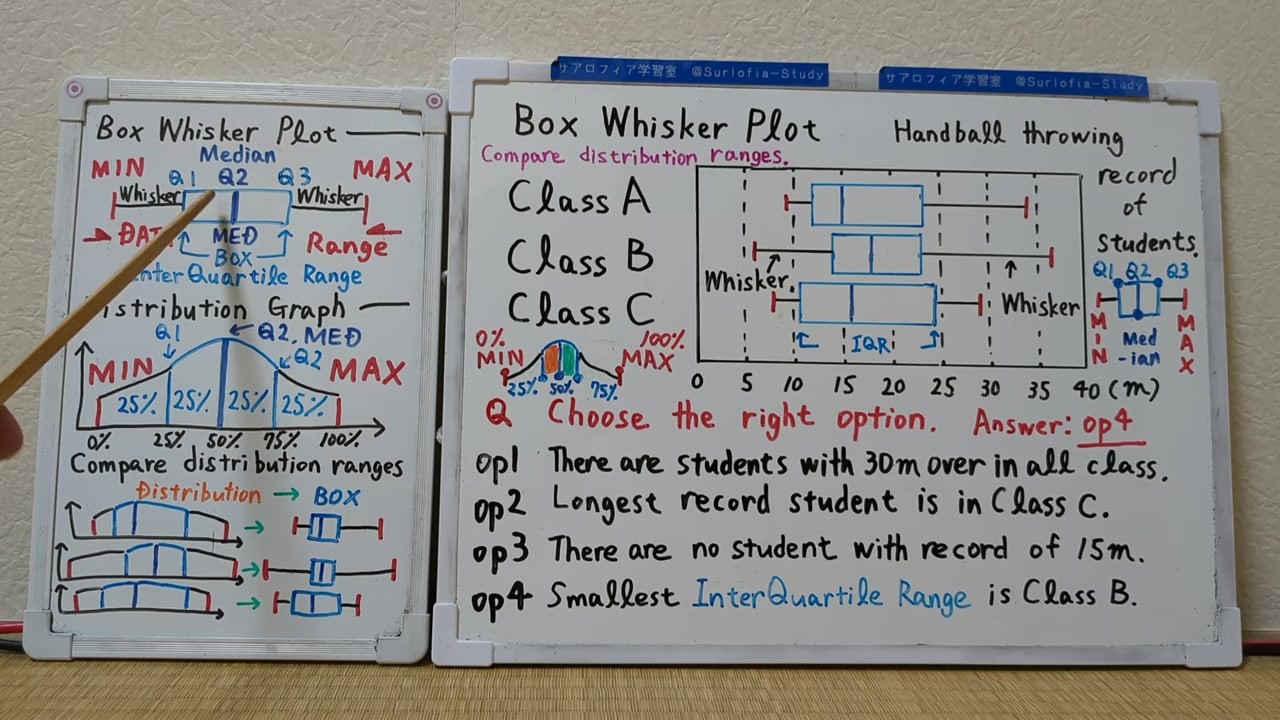 Box Whisker Plot
Median
MIN Q1 Q2 Q3 MAX
Whisker Whisker
MED Range
BOX
Quartile Range
Distribution Graph
Q1 Q2, MED
Q2
MIN MAX
25% 25% 25% 25%
0% 25% 50% 75% 100%
Compare distribution ranges
Distribution → BOX
→
→
→
サアロフィア学習室 @Surlofia-Study
サアロフィア学習室 @Surlofia-Study
Box Whisker Plot Handball throwing
record
of
students.
Compare distribution ranges.
Class A
Class B
Whisker. Whisker
Class C
IQR
0% 100%
MIN MAX
25% 50% 75%
0 5 10 15 20 25 30 35 40 (m)
Q1 Q2 Q3
MIN Med-ian MAX
Q Choose the right option. Answer: op4
op1 There are students with 30m over in all class.
op2 Longest record student is in Class C.
op3 There are no student with record of 15m.
op4 Smallest InterQuartile Range is Class B.